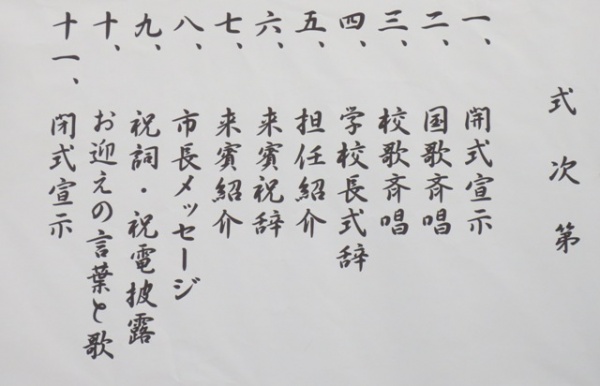 式次第
一、開式宣示
二、国歌斉唱
三、校歌斉唱
四、学校長式辞
五、担任紹介
六、来賓祝辞
七、来賓紹介
八、市長メッセージ
九、祝詞・祝電披露
十、お迎えの言葉と歌
十一、閉式宣示